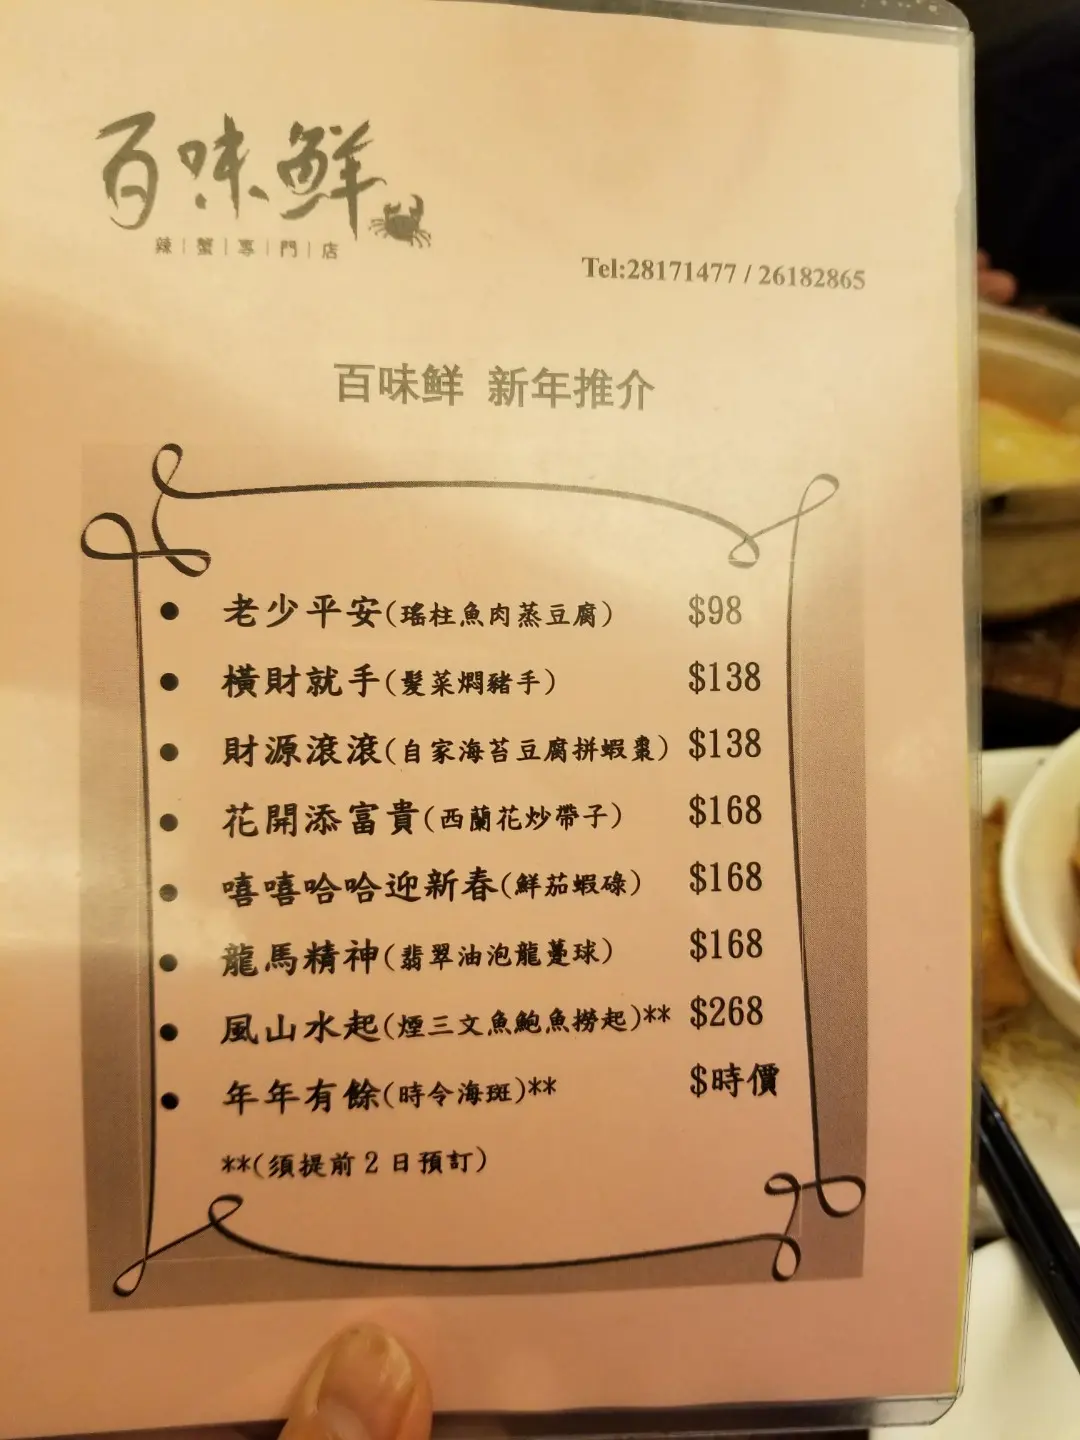 百味鮮
辣|蟹|專|門|店
Tel:28171477 / 26182865
百味鮮 新年推介
• 老少平安(瑤柱魚肉蒸豆腐) $98
• 橫財就手(髮菜燜豬手) $138
• 財源滾滾(自家海苔豆腐拼蝦棗) $138
• 花開添富貴(西蘭花炒帶子) $168
• 嘻嘻哈哈迎新春(鮮茄蝦碌) $168
• 龍馬精神(翡翠油泡龍躉球) $168
• 風山水起(煙三文魚鮑魚撈起)** $268
• 年年有餘(時令海斑)** $時價
**(須提前2日預訂)